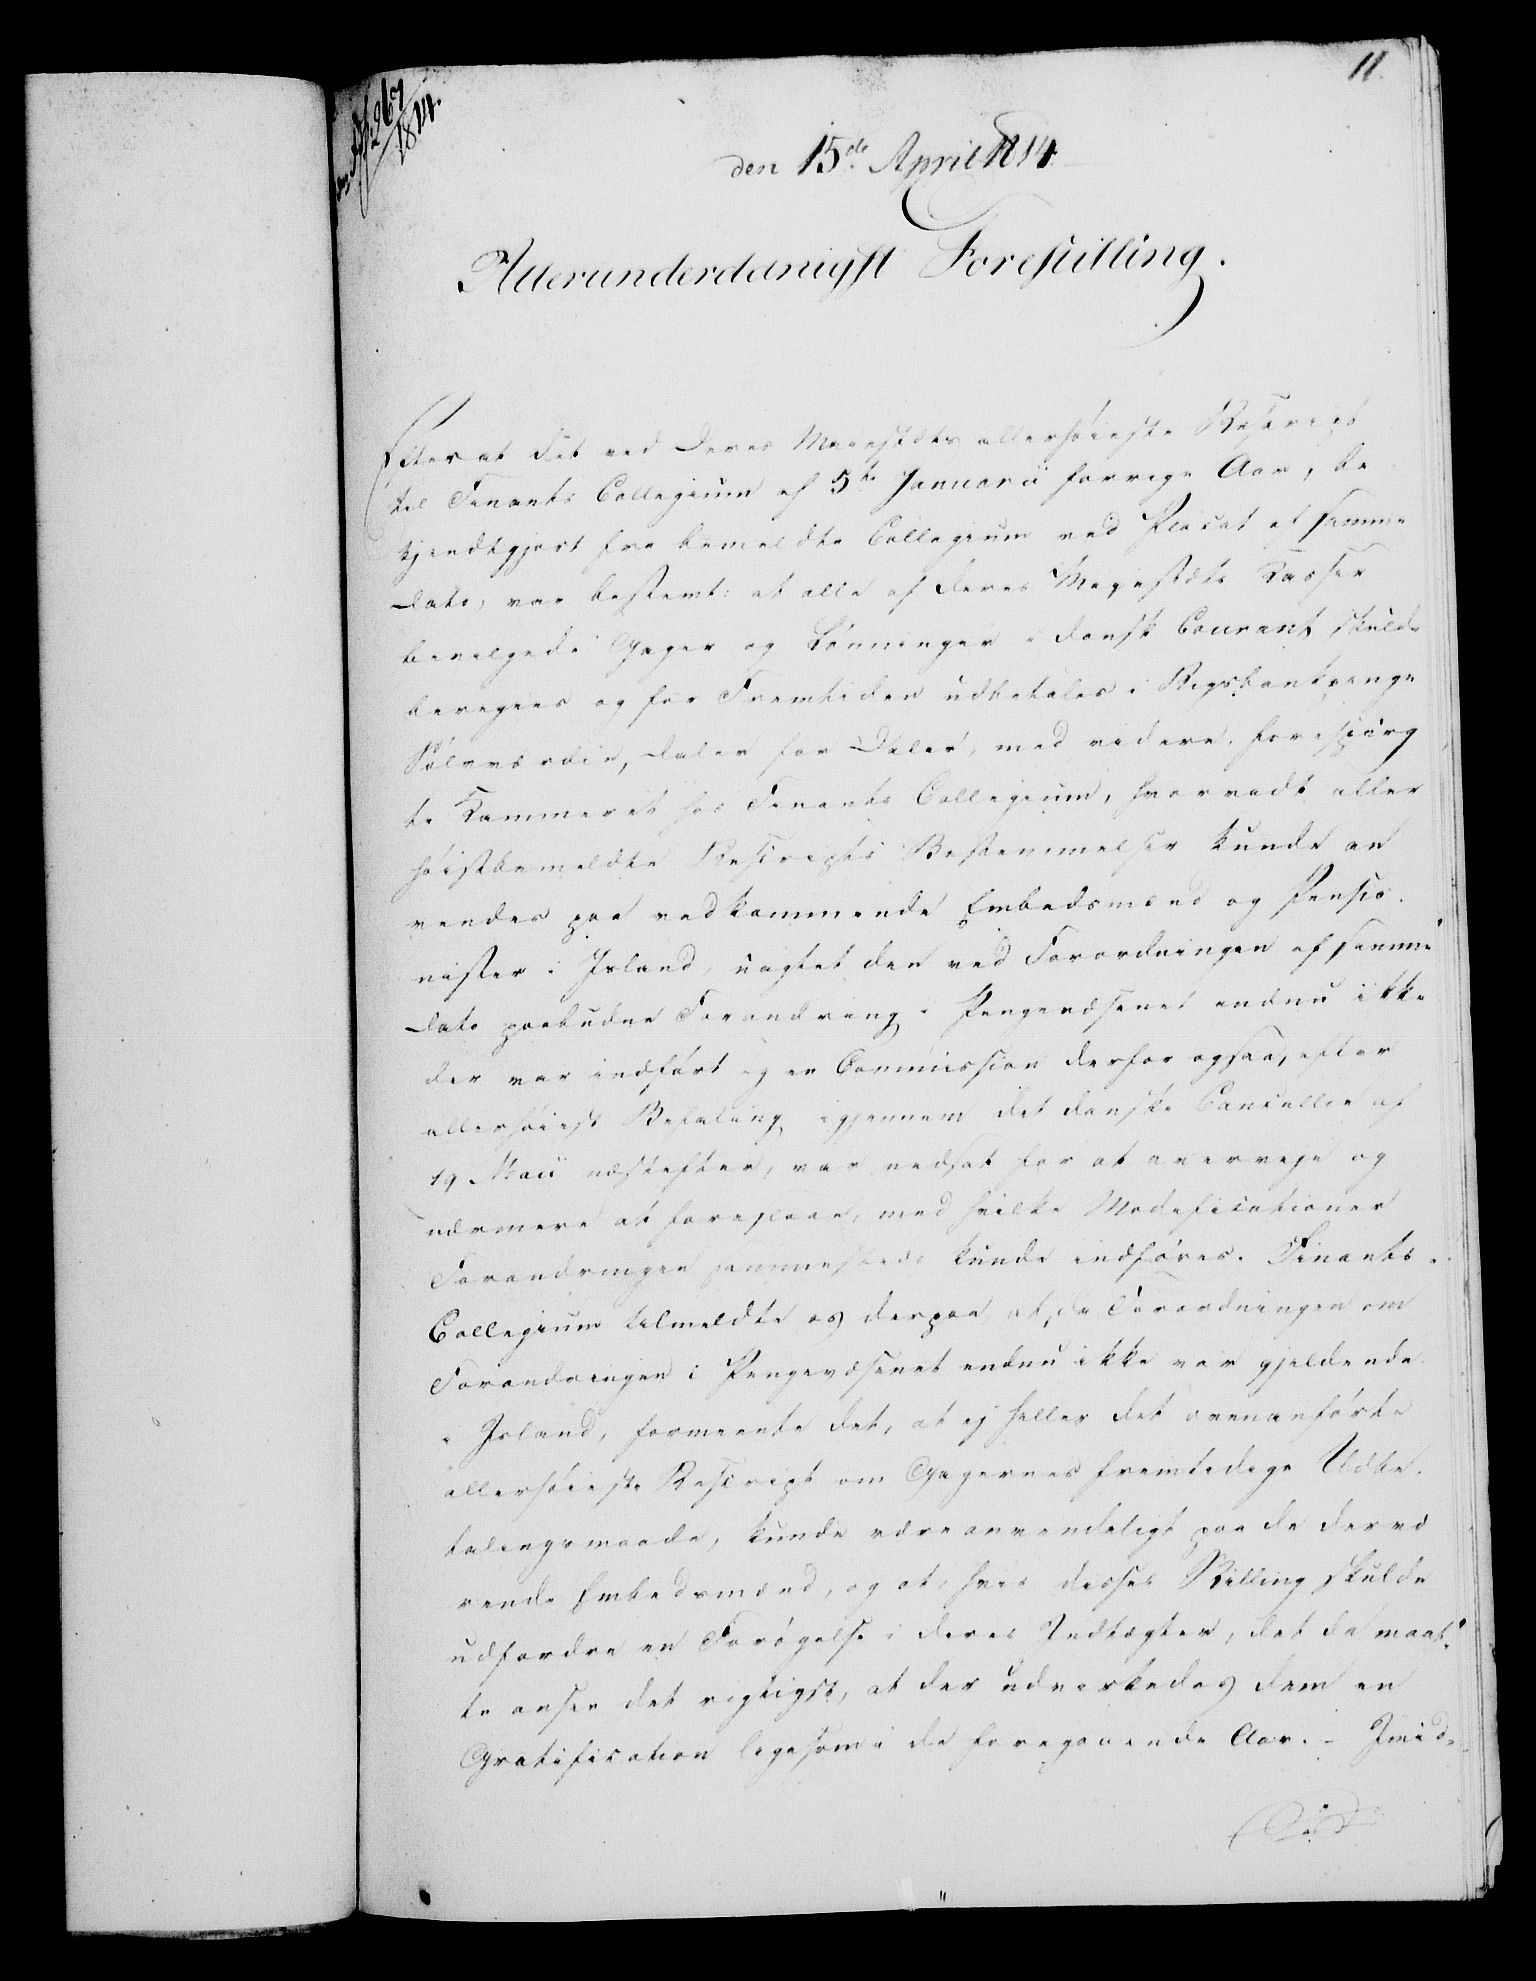 11.
267
1814.
den 15de April 1814.
Allerunderdanigst Forestilling.
Efter at det ved Deres Majestæts allerhøieste Rescript
til Finants Collegium af 5te Januarii forrige Aar, be
kjendtgjort fra bemeldte Collegium ved Placat af samme
Dato, var bestemt: at alle af Deres Majestæts Kasser
bevilgede Gager og Lønninger i dansk Courant skulde
beregnes og for Fremtiden udbetales i Rigsbankpenge
Sølvværdie, Daler for Daler, med videre, forespørg
te Kammeret hos Finants Collegium, hvorvidt aller
høistbemeldte Rescripts Bestemmelser kunde an
vendes paa vedkommende Embedsmænd og Pensio-
nister i Island, uagtet den ved Forordningen af samme
Dato paabudne Forandring i Pengevæsenet endnu ikke
der var indført og en Commission derfor ogsaa, efter
allerhøiest Befaling igjennem det danske Cancellie af
19 Maii næstefter, var nedsat for at overveje og
nærmere at foreslaae, med hvilke Modificationer
Forandringen sammesteds kunde indføres. Finants-
Collegium tilmeldte os derpaa, at, da Forordningen om
Forandringen i Pengevæsenet endnu ikke var gjeldende
i Island, formeente det, at ej heller det ovenanførte
allerhøieste Rescript om Gagernes fremtidige Udbe-
talingsmaade, kunde være anvendeligt paa de dervæ
rende Embedsmænd, og at, hvis disses Stilling skulde
udfordre en Forøgelse i deres Indtægter, det da maat-
te ansee det rigtigst, at der udvirkedes dem en
Gratification ligesom i de foregaaende Aar. - Imid-